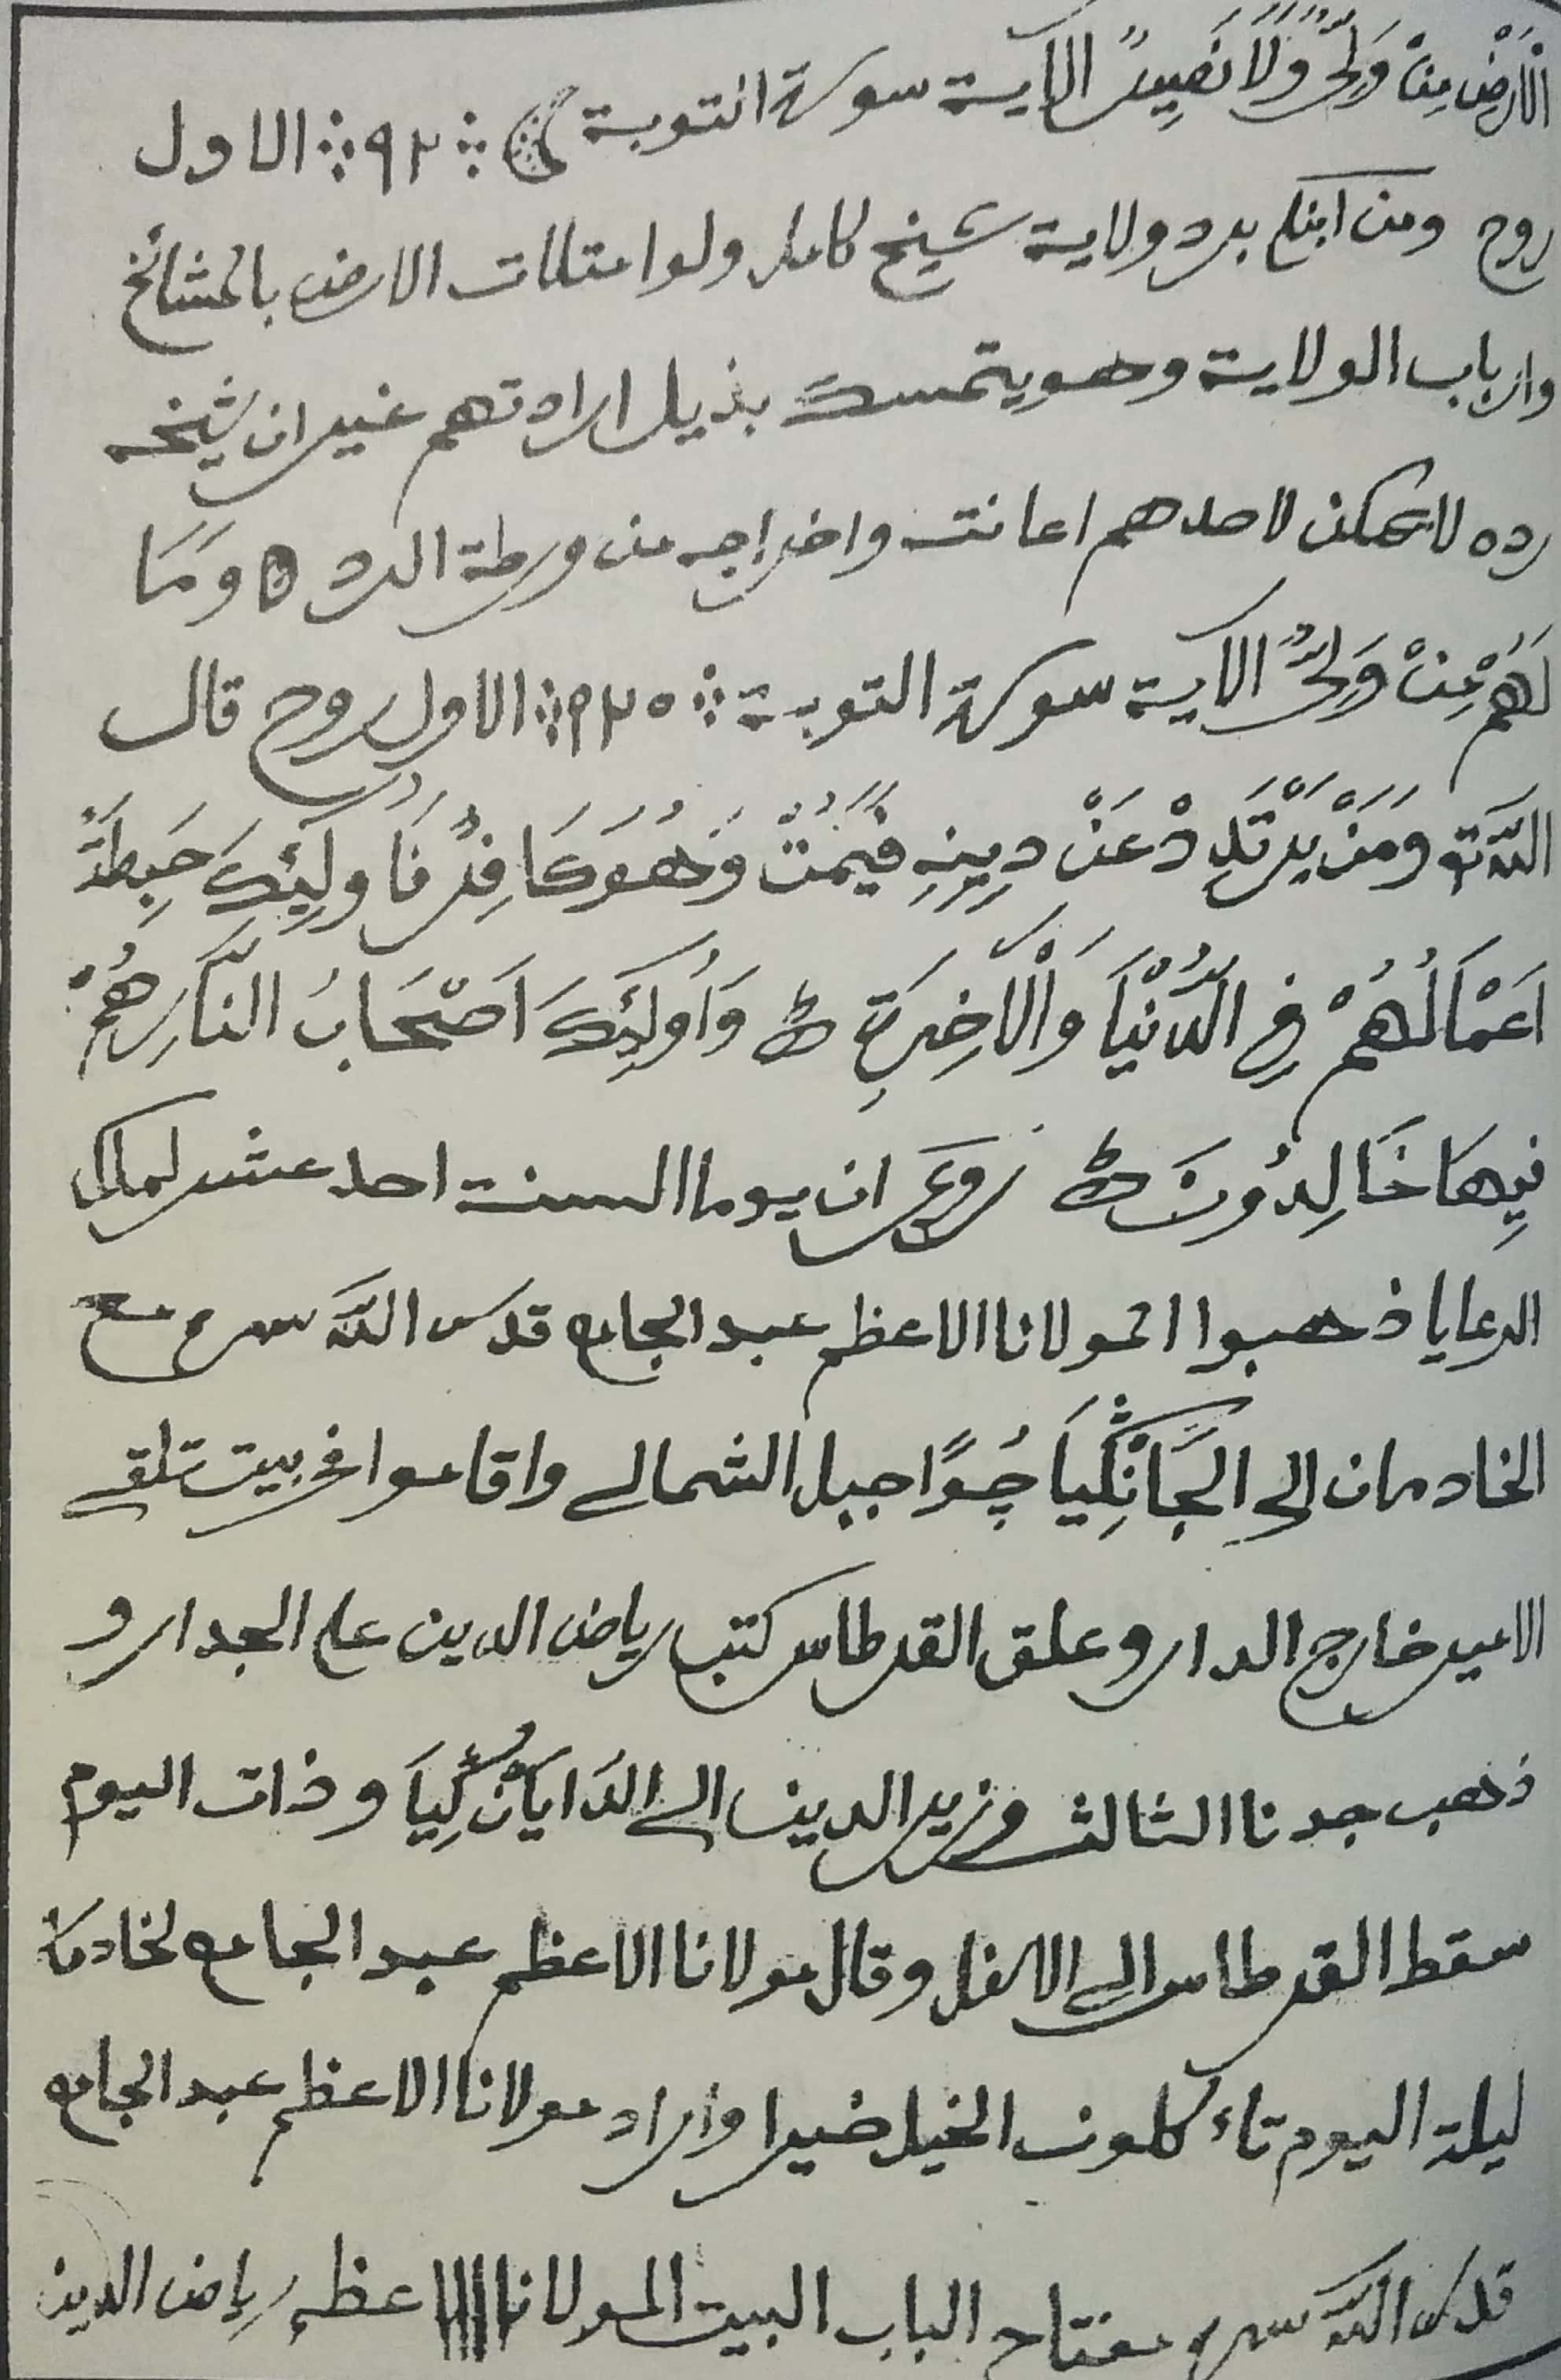 الْاَرْضِ مِنْ وَلِيٍّ وَّلَا نَصِيْرٍ الآية سورة التوبة ∴ ٩٢ ∴ الاول
روح ومن ابتلى برد ولاية شيخ كامل ولوا متلات الارض بالمشائخ
وارباب الولاية وهو يتمسك بذيل ارادتهم غير ان شيخه
رده لا يمكن لاحدهم اعانته واخراجه من ورطة الرد ٥ وَمَا
لَهُمْ مِنْ وَلِيٍّ الآية سورة التوبة ∴ ٩٢٥ ∴ الاول روح قال
اللّٰه تع وَمَنْ يَرْتَدِدْ عَنْ دِيِنِهِ فَيَمُتْ وَهُوَ كَافِرٌ فَاُولَئِكَ حَبِطَتْ
اَعْمَالُهُمْ فِي الدُّنْيَا وَالْاٰخِرَةِ ط وَاُولَئِكَ اَصْحَابُ النَّارِ هُمْ
فِيهَا خَالِدُونَ ط روى ان يوما السنة احد عشر لمالك
الرعايا ذهبوا المولانا الاعظم عبد الجامع قدس اللّٰه سره مع
الخادمان الى الجَانْكِيَا جُوًا جبل الشمالي واقاموا في بيت تلقى
الامير خارج الدار وعلق القرطاس كتب رياض الدين على الجدار و
ذهب جدنا الثالث وزير الدين الى الدَايَانْ كِيَا وذات اليوم
سقط القرطاس الى الاسفل وقال مولانا الاعظم عبد الجامع لخادمه
ليلة اليوم تاء كلون الخيل خيرا واراد مولانا الاعظم عبد الجامع
قدس اللّٰه سره مفتاح الباب البيت المولانا الاعظم رياض الدين